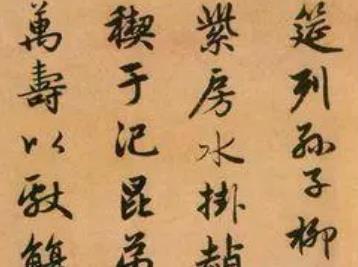 筵列孙子柳
紫房水掛
稧于汜昆弟
萬壽以献